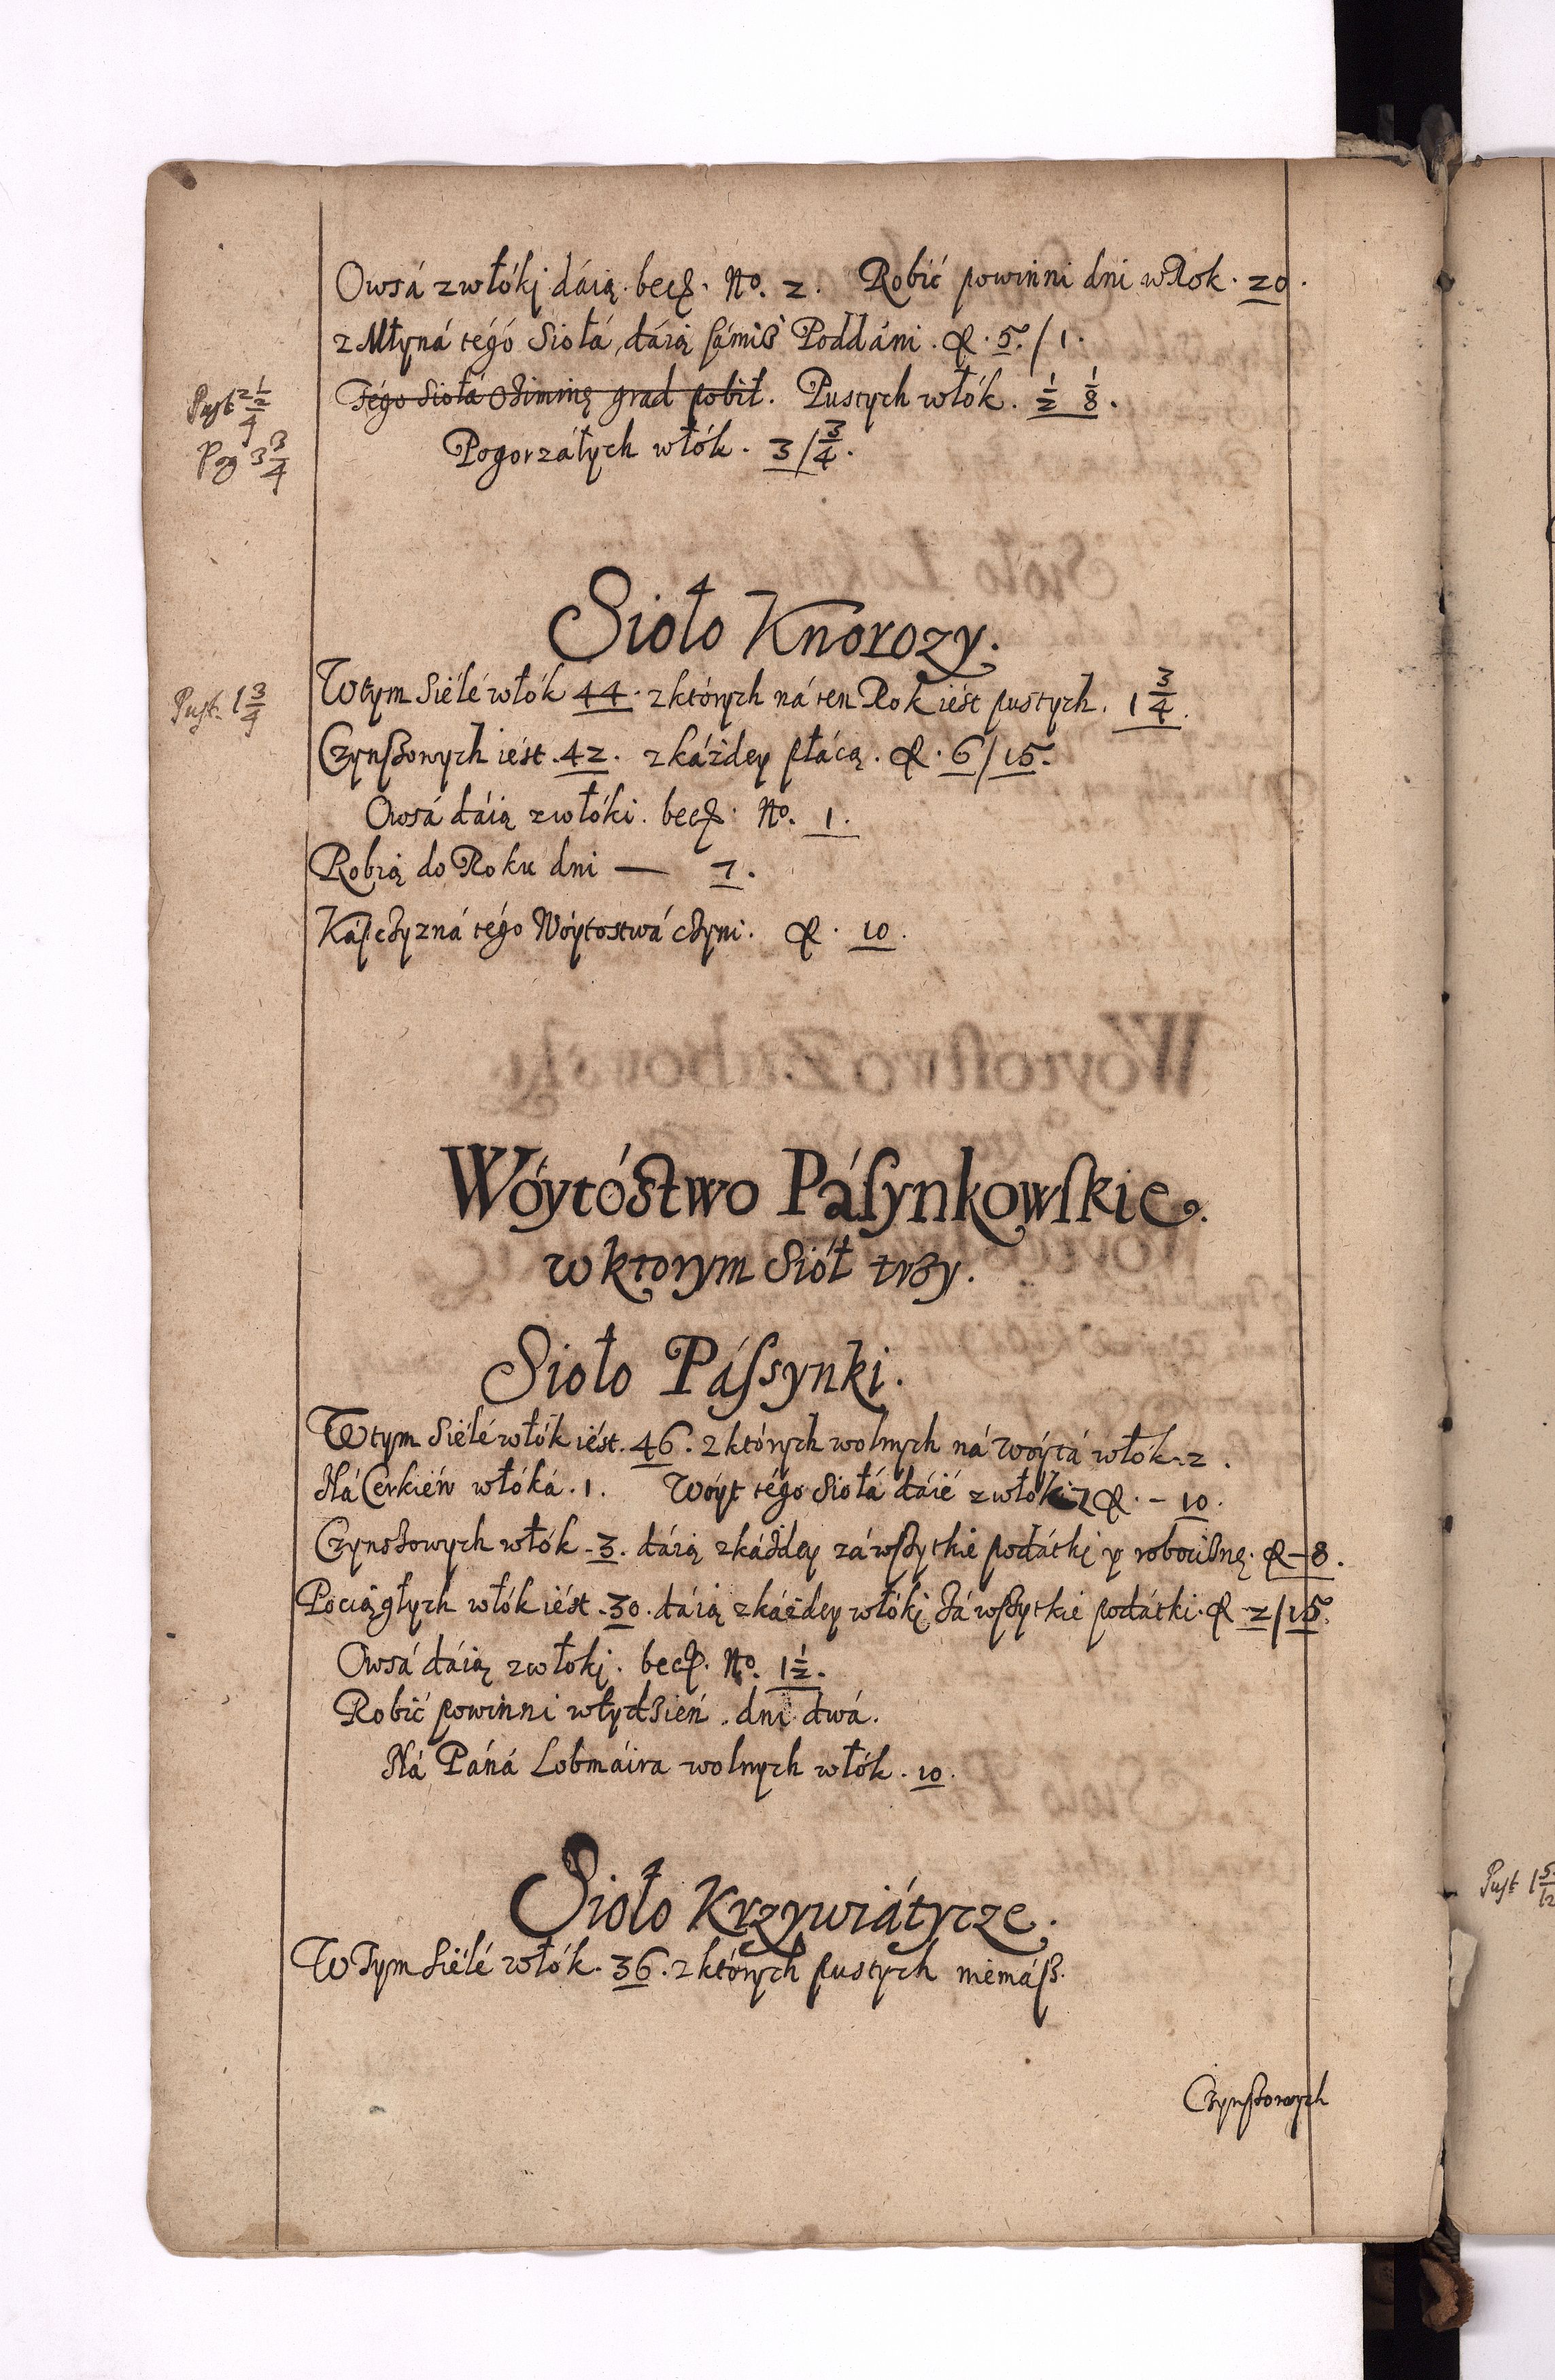 Owsá z włókj dáią. becz. No. 2. Robić powinni dni w Rok. 20.
z Młyná tégó Siołá, dáią sámiż Poddáni. fl. 5. / 1.
Tégo Siołá Oziminę grad pobił. Pustych włók. 1/2 1/8.
Pust 2 1/2 4
Pogorzáłych włók. 3 / 3/4.
Pog 3 3/4
Sioło Knorozy.
W tym Siélé włók 44. z których ná ten Rok iést pustych. 1 3/4.
Pust. 1 3/4
Czynszowych iést. 42. z káżdey płácą. fl. 6 / 15.
Owsá dáią z włóki. becz. No. 1.
Robią do Roku dni — 7.
Kápczyzná tégo Wóytostwá czyni. fl. 10.
Wóytóstwo Pásynkowskie.
w ktorym Siół trzy.
Sioło Pássynki.
W tym Siélé włók iést. 46. z których wolnych ná wóytá włók. 2.
Ná Cerkiéw włóká. 1. Wóyt tégo Siołá dáié z włók fl. - 10.
Czynszowych włók. 3. dáią z káżdey zá wszytkie podátkj y roboćiznę. fl - 8.
Pociągłych włók iést. 30. dáią z káżdey włókj zá wszytkie podátki. fl 2 / 15.
Owsá dáią z włokj. becz. No. 1 1/2.
Robić powinni w tydzień. dni dwá.
Ná Páná Lobmáira wolnych włók. 10.
Sioło Krzywiátycze.
W tym Siélé włók. 36. z których pustych niémász.
Czynszowych
Pust 1 5/12